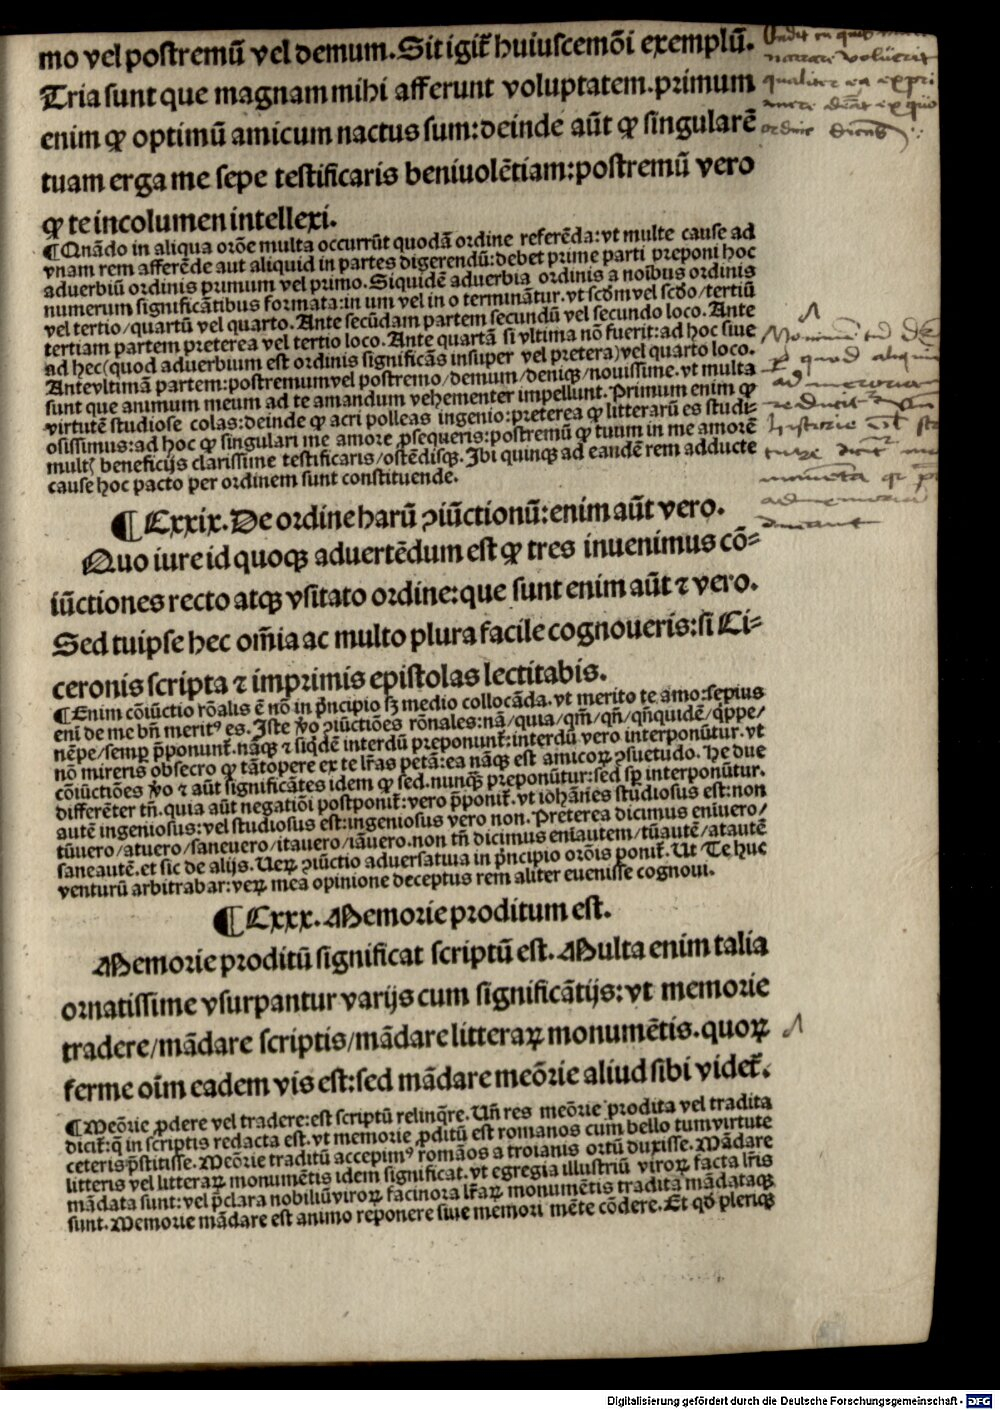 mo vel postremū vel demum. Sit igit̄ huiuscemōi exemplū.
Tria sunt que magnam mihi afferunt voluptatem. primum
enim ꝙ optimū amicum nactus sum: deinde aūt ꝙ singularē
tuam erga me sepe testificaris beniuolētiam: postremū vero
ꝙ te incolumen intellexi.
¶ Qnādo in aliqua orōe multa occurrūt quodā ordine referēda: vt multe cause ad
vnam rem afferēde aut aliquid in partes digerendū: debet prime parti preponi hoc
aduerbiū ordinis primum vel primo. Siquidē aduerbia ordinis a noībus ordinis
numerum significātibus formata: in um vel in o terminātur. vt scd̄m vel scd̄o/ tertiū
vel tertio/ quartū vel quarto. Ante secūdam partem secundū vel secundo loco. Ante
tertiam partem preterea vel tertio loco. Ante quartā si vltima nō fuerit: ad hoc siue
ad hec (quod aduerbium est ordinis significās insuper vel pretera) vel quarto loco.
Ante vltimā partem: postremum vel postremo/ demum/ deniqꝫ/ nouissime. vt multa
sunt que animum meum ad te amandum vehementer impellunt. Primum enim ꝙ
virtutē studiose colas: deinde ꝙ acri polleas ingenio: preterea ꝙ litterarū es studi-
osissimus: ad hoc ꝙ singulari me amore ꝓsequeris: postremū ꝙ tuum in me amorē
multꝭ beneficijs clarissime testificaris/ ostēdisqꝫ. Ibi quinqꝫ ad eandē rem adducte
cause hoc pacto per ordinem sunt constituende.
¶ Lxxix. De ordine harū ↄiūctionū: enim aūt vero.
Quo iure id quoqꝫ aduertēdum est ꝙ tres inuenimus cō-
iūctiones recto atqꝫ vsitato ordine: que sunt enim aūt ⁊ vero.
Sed tuipse hec om̄ia ac multo plura facile cognoueris: si Ci-
ceronis scripta ⁊ imprimis epistolas lectitabis.
¶ Enim cōiūctio rōalis ē nō in pͥncipio sꝫ medio collocāda. vt merito te amo: sepius
eni de me bn̄ meritꝰ es. Iste v̄o ↄiūctiōes rōnales: nā/ quia/ qm̄/ qn̄/ qn̄quidē/ qꝑpe/
nēpe/ semꝑ p̄ponunt̄. nāqꝫ ⁊ siqdē interdū preponunt̄: interdū vero interponūtur. vt
nō mireris obsecro ꝙ tātopere ex te lr̄as petā: ea nāqꝫ est amicoꝝ ↄsuetudo. He due
cōiūctiōes v̄o ⁊ aūt significātes idem ꝙ sed. nunqꝫ preponūtur: sed sꝑ interponūtur.
differēter tn̄. quia aūt negatiōi postponit̄: vero p̄ponit̄. vt iohānes studiosus est: non
autē ingeniosus: vel studiosus est: ingeniosus vero non. Preterea dicimus enīuero/
tūuero/ atuero/ saneuero/ itauero/ iāuero. non tn̄ dicimus eniautem/ tūautē/ atautē
saneautē. et sic de alijs. Ueꝝ ↄiūctio aduersatiua in pͥncipio orōis ponit̄. Ut Te huc
venturū arbitrabar: veꝝ mea opinione deceptus rem aliter euenisse cognoui.
¶ Lxxx. Memorie proditum est.
Memorie proditū significat scriptū est. Multa enim talia
ornatissime vsurpantur varijs cum significātijs: vt memorie
tradere/ mādare scriptis/ mādare litteraꝝ monumētis. quoꝝ
ferme oīm eadem vis est: sed mādare meōrie aliud sibi videt̄.
¶ Meōrie ꝓdere vel tradere: est scriptū relinqͥre. Un̄ res meōrie prodita vel tradita
dicit̄: q̄ in scriptis redacta est. vt memorie ꝓditū est romanos cum bello tum virtute
ceteris p̄stitisse. Meōrie traditū accepimꝰ romāos a troianis ortū duxisse. Mādare
litteris vel litteraꝝ monumētis idem significat. vt egregia illustriū viroꝝ facta lr̄is
mādata sunt: vel p̄clara nobiliū viroꝝ facinora lr̄aꝝ monumētis tradita mādataqꝫ
sunt. Memorie mādare est animo reponere siue memori mēte cōdere. Et qd̄ pleriqꝫ
Digitalisierung gefördert durch die Deutsche Forschungsgemeinschaft - DFG